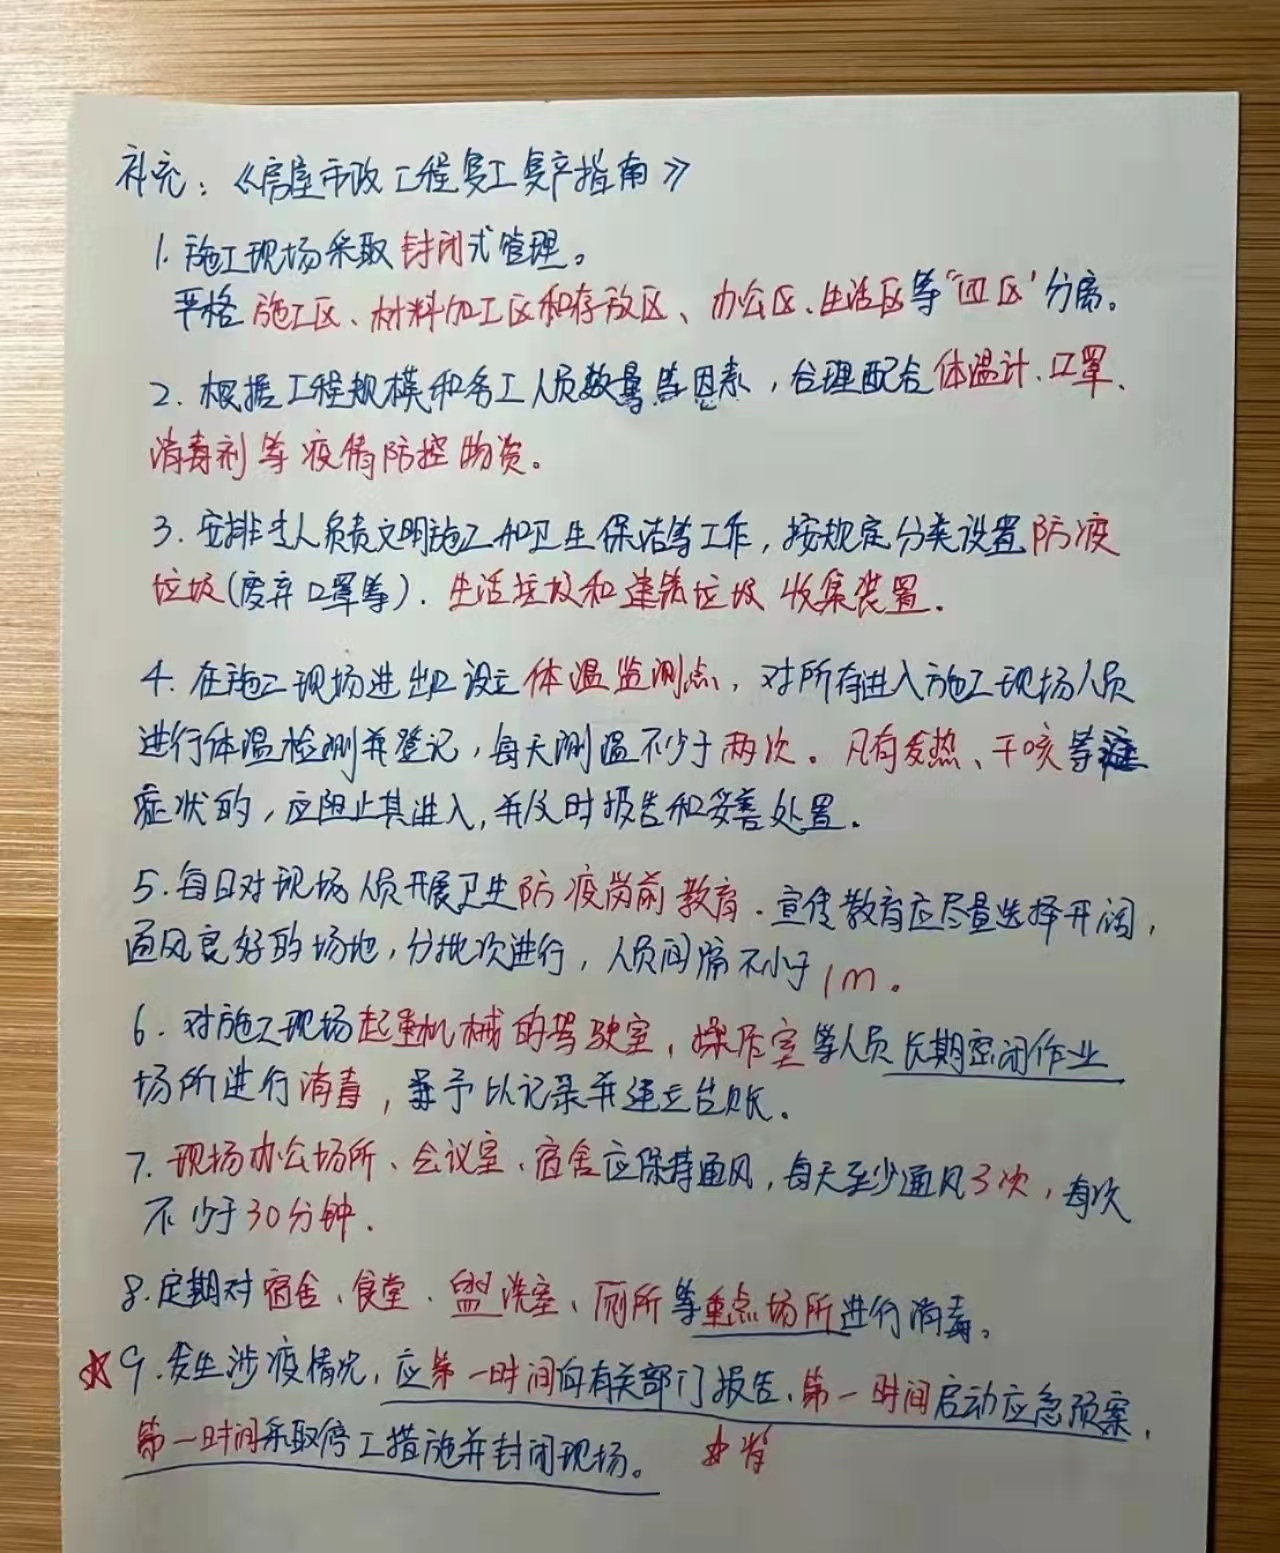 补充：《房屋市政工程复工复产指南》
1. 施工现场采取封闭式管理。
严格施工区、材料加工区和存放区、办公区、生活区等“四区”分离。
2. 根据工程规模和务工人员数量等因素，合理配合体温计、口罩、
消毒剂等疫情防控物资。
3. 安排专人负责文明施工和卫生保洁等工作，按规定分类设置防疫
垃圾(废弃口罩等)、生活垃圾和建筑垃圾收集装置。
4. 在施工现场进出口设立体温监测点，对所有进入施工现场人员
进行体温检测并登记，每天测温不少于两次。凡有发热、干咳等
症状的，应阻止其进入，并及时报告和妥善处置。
5. 每日对现场人员开展卫生防疫岗前教育。宣传教育应尽量选择开阔，
通风良好的场地，分批次进行，人员间隔不小于1m。
6. 对施工现场起重机械的驾驶室，操作室等人员长期密闭作业
场所进行消毒，并予以记录并建立台账。
7. 现场办公场所、会议室、宿舍应保持通风，每天至少通风3次，每次
不少于30分钟。
8. 定期对宿舍、食堂、盥洗室、厕所等重点场所进行消毒。
☆9. 发生涉疫情况，应第一时间向有关部门报告、第一时间启动应急预案，
第一时间采取停工措施并封闭现场。 必背